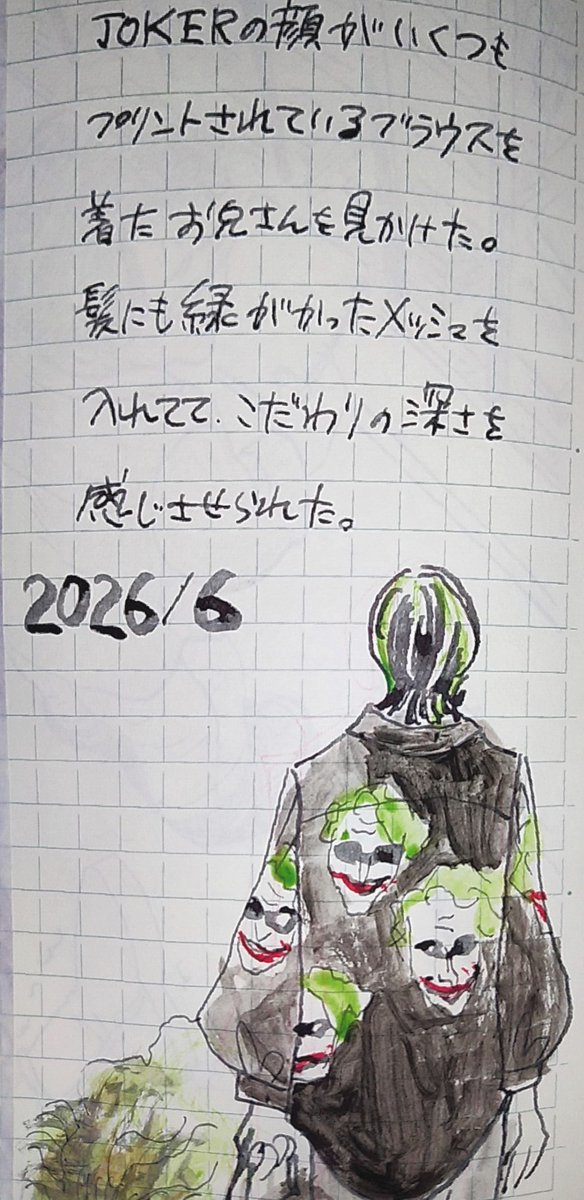 JOKERの顔がいくつも
プリントされているブラウスを
着たお兄さんを見かけた。
髪にも緑がかったメッシュを
入れてて、こだわりの深さを
感じさせられた。
2026/6